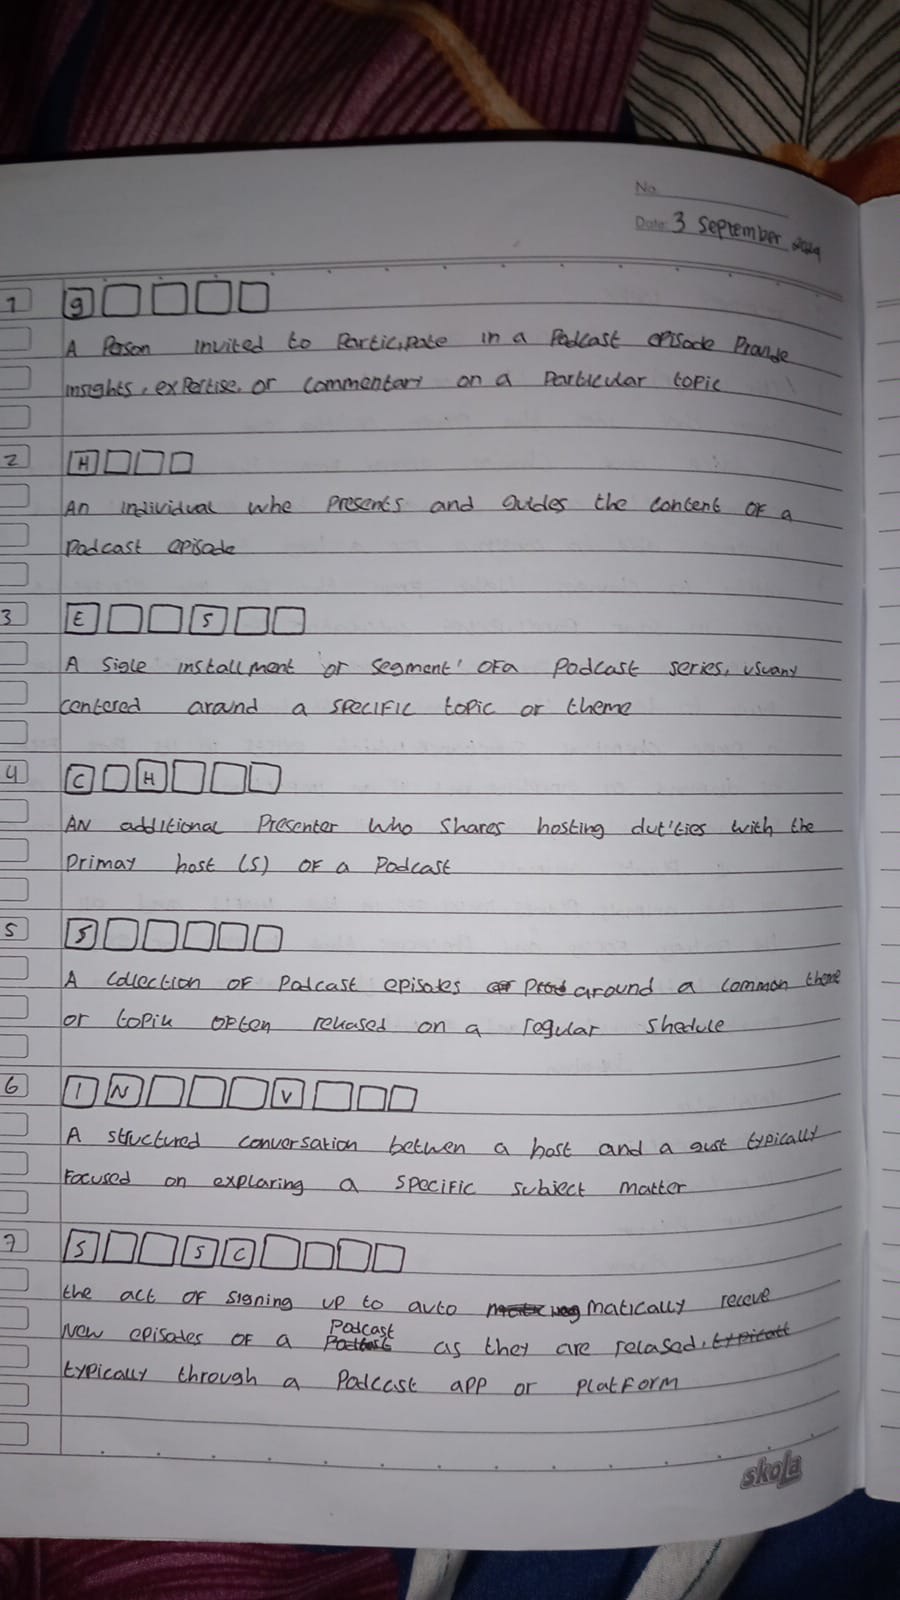 No.
Date: 3 September 2024
1 g
A Person invited to Participate in a Podcast episode Provide
insights, expertise, or commentary on a Particular topic
2 H
An individual who Presents and guides the content OF a
Podcast episode
3 E S
A Sigle installment or segment' OF a Podcast series, usually
centered around a SPECIFIC topic or theme
4 C H
AN additional Presenter who shares hosting dut'ties with the
Primay host (s) OF a Podcast
5 S
A Collection OF Podcast episodes around a common theme
or topik OFten released on a regular Shedule
6 I N V
A structured conversation betwen a host and a gust typically
Focused on exploring a SPeciFic subject matter
7 S S C
the act OF signing up to auto matically receve
New episodes OF a Podcast as they are relased,
typically through a Podcast app or PlatForm
skola